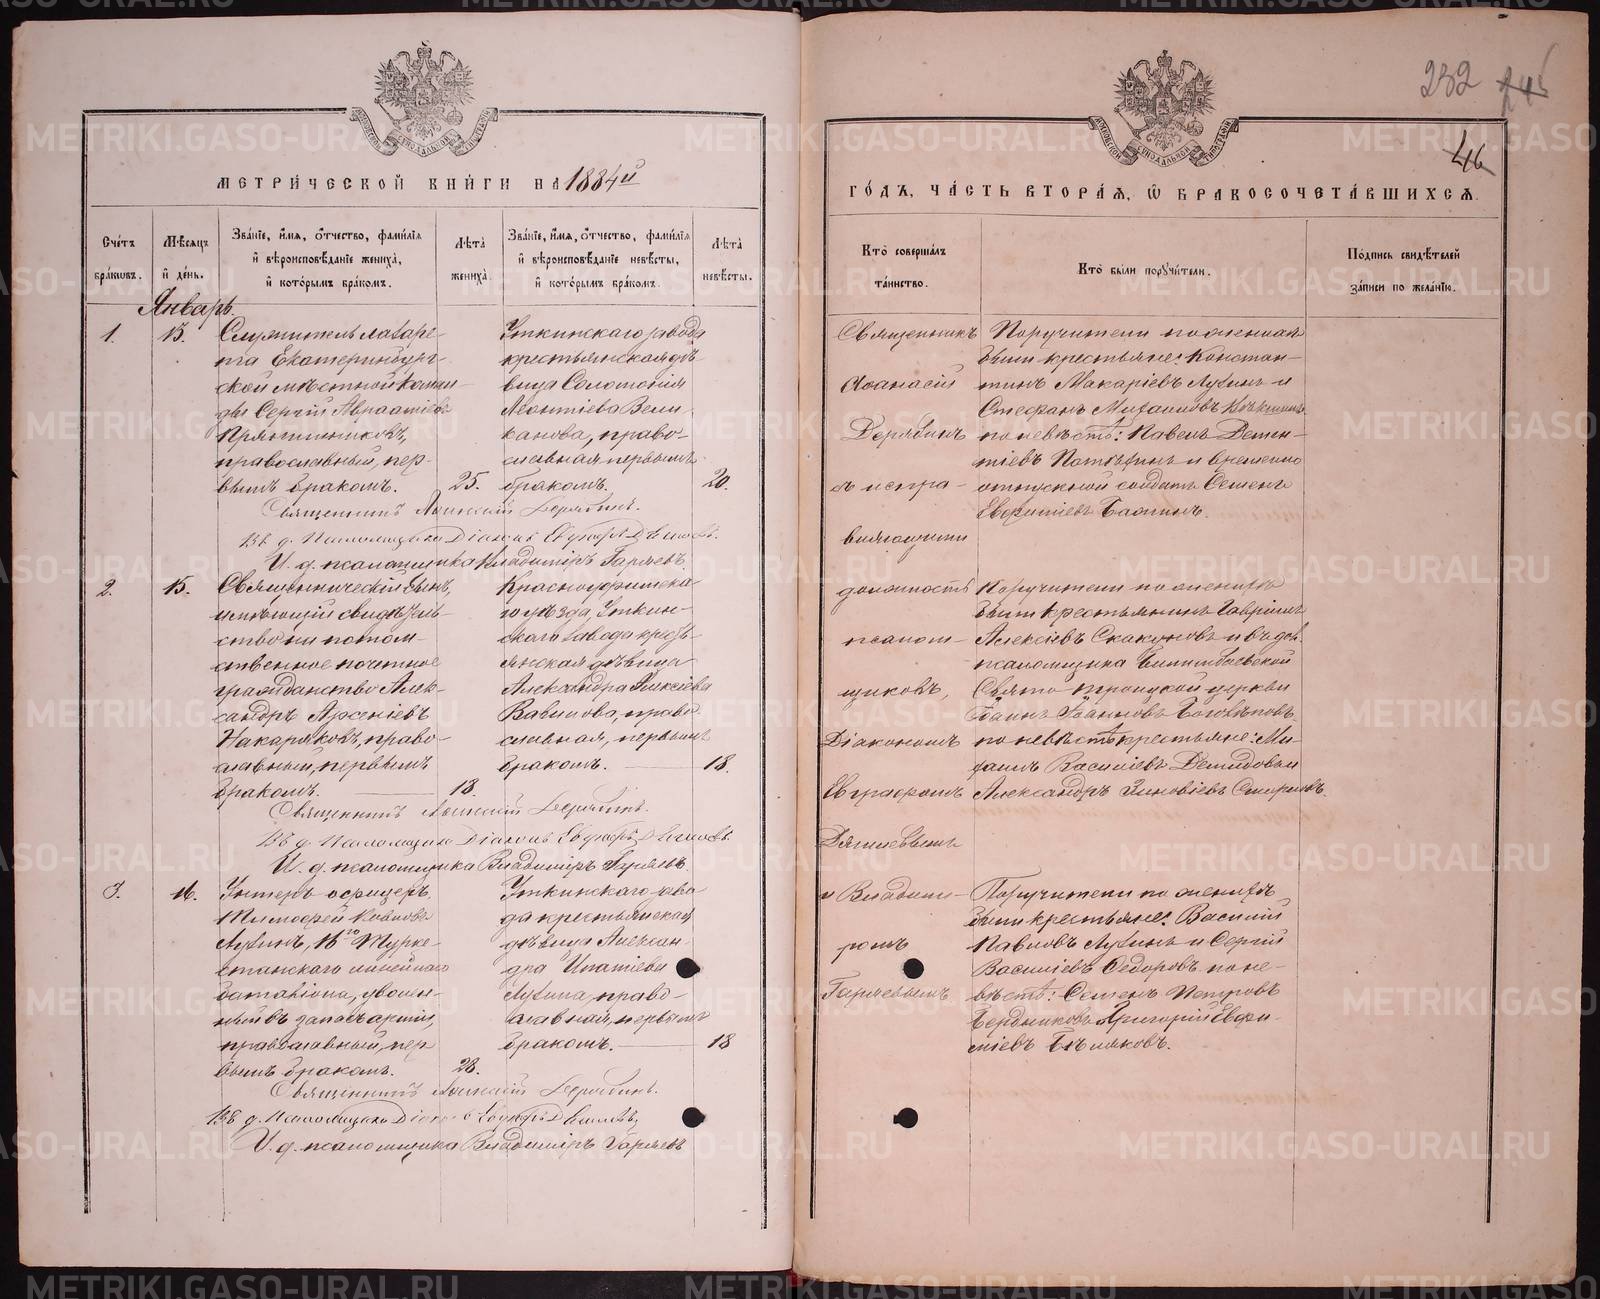 МЕТРИ́ЧЕСКОЙ КНИ́ГИ НА 1884й
Сче́тъ бра́ковъ.
Мѣ́сяцъ и де́нь.
Зва́нїе, и́мя, о́тчество, фами́лїя и вѣроисповѣ́данїе жениха̀, и кото́рымъ бра́комъ.
Лѣ́та жениха̀.
Зва́нїе, и́мя, о́тчество, фами́лїя и вѣроисповѣ́данїе невѣ́сты, и кото́рымъ бра́комъ.
Лѣ́та невѣ́сты.
Январь.
1.
15.
Служитель лазаре-
та Екатеринбург-
ской мѣстной коман-
ды Сергій Авраамiевъ
Пряничниковъ,
православный, пер-
вымъ бракомъ.
25.
Уткинскаго завода
крестьянская дѣ-
вица Соломонія
Леонтіева Вели-
канова, право-
славная первымъ
бракомъ.
20.
Священникъ Аѳанасій Дерябинъ.
Діаконъ Евграфъ
И. д. псаломщика Владиміръ Гаряевъ.
2.
15.
Священническій сынъ,
имѣющій свидѣтель-
ство на потом-
ственное почетное
гражданство Алек-
сандръ Арсеніевъ
Накаряковъ, право-
славный, первымъ
бракомъ.
18.
Красноуфимска-
го уѣзда, Уткин-
скаго завода кресть-
янская дѣвица
Александра Алексіева
Вавилова, право-
славная, первымъ
бракомъ.
18.
Священникъ Аѳанасій Дерябинъ.
Діаконъ Евграфъ
И. д. псаломщика Владиміръ Гаряевъ.
3.
16.
Унтеръ офицеръ
Тимоѳей
Лузинъ, 16го Турке-
станскаго линейнаго
баталіона, уволен-
ный въ запасъ арміи,
православный, пер-
вымъ бракомъ.
28.
Уткинскаго заво-
да крестьянская
дѣвица Алексан-
дра Ипатіева
Лузина, право-
славная, первымъ
бракомъ.
18
Священникъ Аѳанасій Дерябинъ.
Діаконъ Евграфъ
И. д. псаломщика Владиміръ Гаряевъ
232
46
ГО́ДЪ, ЧА́СТЬ ВТОРА́Я, Ѡ БРАКОСОЧЕТА́ВШИХСЯ.
Кто̀ соверша́лъ та́инство.
Кто̀ бы́ли поручи́тели.
По́дпись свидѣ́телей за́писи по жела́нїю.
Священникъ
Аѳанасій
Дерябинъ
съ испра-
вляющими
должность
псалом-
щиковъ,
Діакономъ
Евграфомъ
и Владими-
ромъ
Гаряевымъ
Поручители по женихѣ
были крестьяне: Констан-
тинъ Макаріевъ Лузинъ и
Стефанъ Михаиловъ
по невѣстѣ: Павелъ Демен-
тіевъ и временно
отпускной солдатъ Семенъ
Евфиміевъ
Поручители по женихѣ
были крестьянинъ Гавріилъ
Алексіевъ Скакуновъ и и. д.
псаломщика Билимбаевской
Свято-Троицкой церкви
Іоаннъ Іоанновъ Боголѣповъ
по невѣстѣ крестьяне: Ми-
хаилъ Василіевъ Демидовъ и
Александръ Зиновіевъ Смирновъ.
Поручители по женихѣ
были крестьяне: Василій
Павловъ Лузинъ и Сергій
Василіевъ Ѳедоровъ по не-
вѣстѣ: Семенъ Петровъ
Бердниковъ Григорій Евфи-
міевъ Бѣляковъ.
METRIKI.GASO-URAL.RU